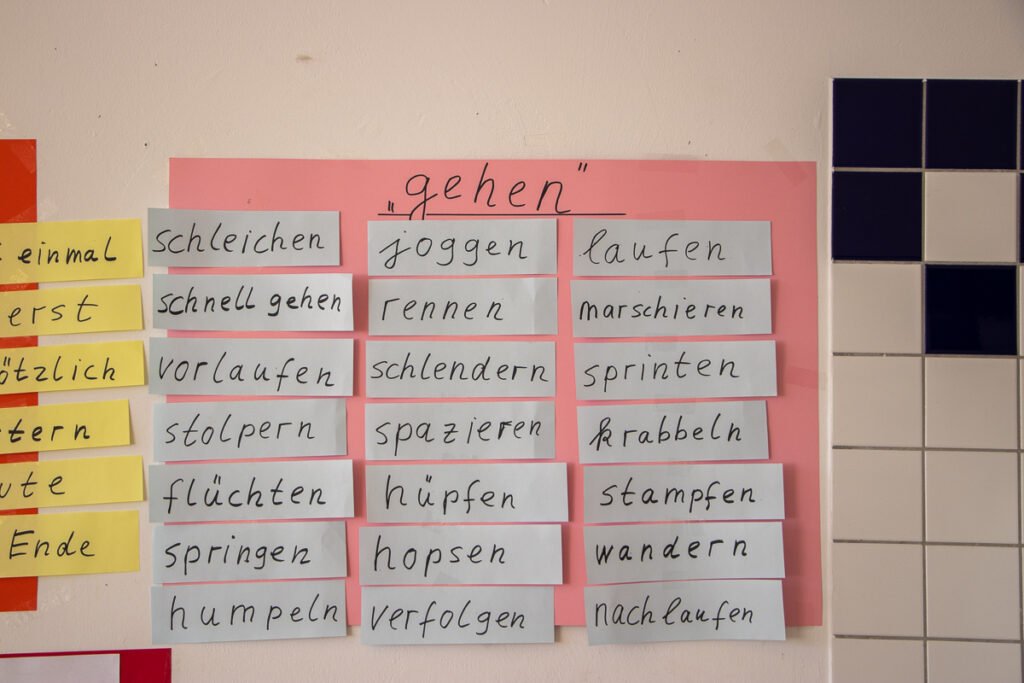 „gehen"
einmal
schleichen
joggen
laufen
erst
schnell gehen
rennen
marschieren
ötzlich
vorlaufen
schlendern
sprinten
tern
stolpern
spazieren
krabbeln
ute
flüchten
hüpfen
stampfen
Ende
springen
hopsen
wandern
humpeln
verfolgen
nachlaufen